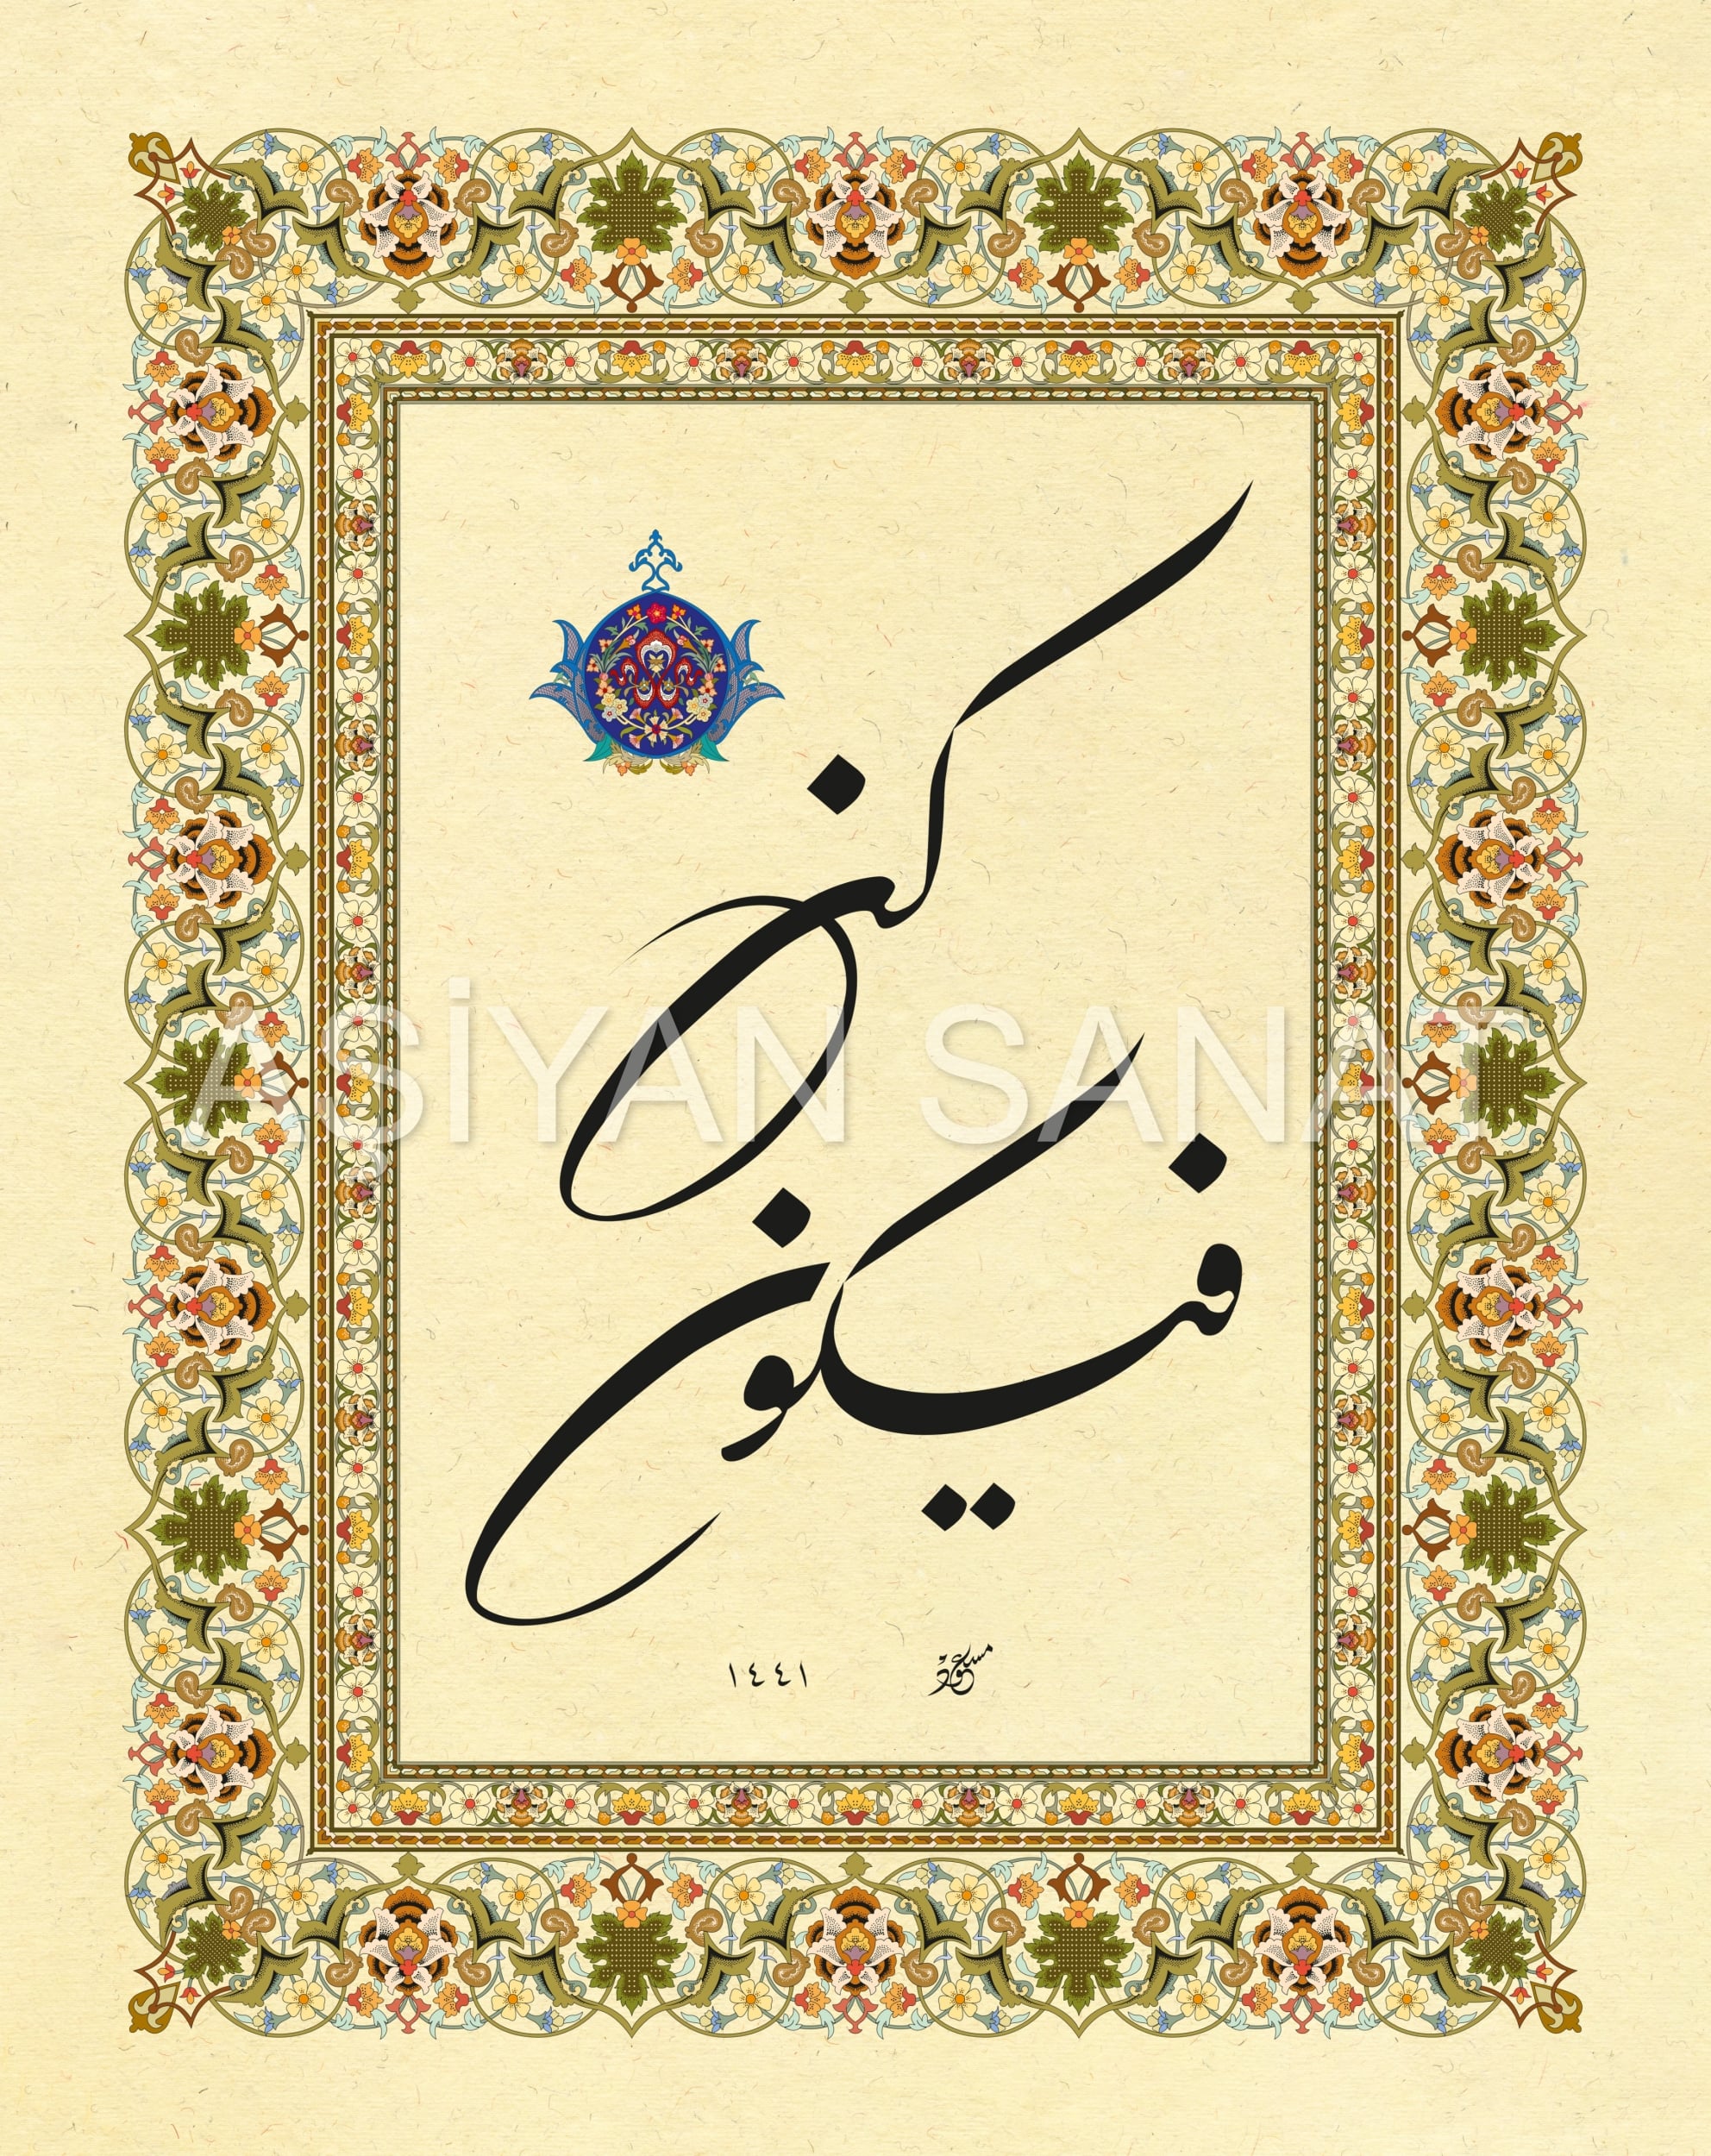 كن
فيكون
مسعود
١٤٤١
AŞİYAN SANAT